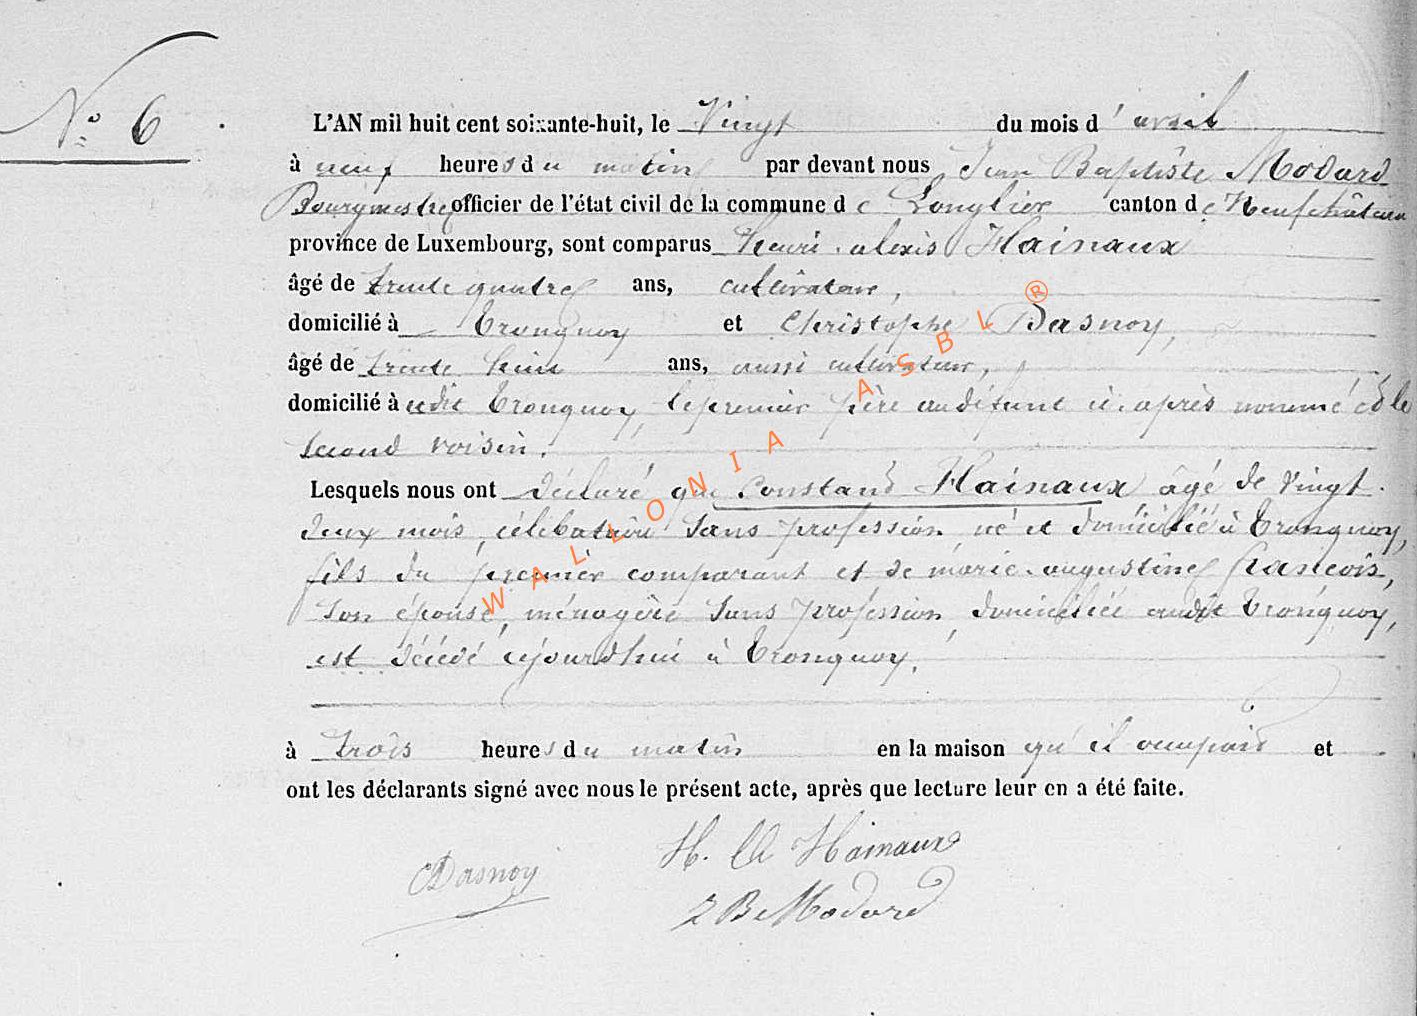 N° 6
L'AN mil huit cent soixante-huit, le Vingt du mois d'avril
à neuf heures du matin par devant nous Jean Baptiste Modard
Bourgmestre officier de l'état civil de la commune de Longlier canton de Neufchâteau
province de Luxembourg, sont comparus Henri alexis Hainaux
âgé de trente quatre ans, cultivateur,
domicilié à Tronquoy et Christophe Dasnoy,
âgé de trente huit ans, aussi cultivateur,
domicilié à udit Tronquoy, le premier père au défunt ci-après nommé et le
second voisin.
Lesquels nous ont déclaré que Constant Hainaux âgé de vingt
deux mois, célibataire sans profession, né et domicilié à Tronquoy,
fils du premier comparant et de marie-augustine francois,
son épouse, ménagère sans profession, domiciliée audit Tronquoy,
est décédé cejourd'hui à Tronquoy,
à trois heures du matin en la maison qu'il occupait et
ont les déclarants signé avec nous le présent acte, après que lecture leur en a été faite.
H. A Hainaux
CDasnoy
J B Modard
WALLONIA ASBL ®